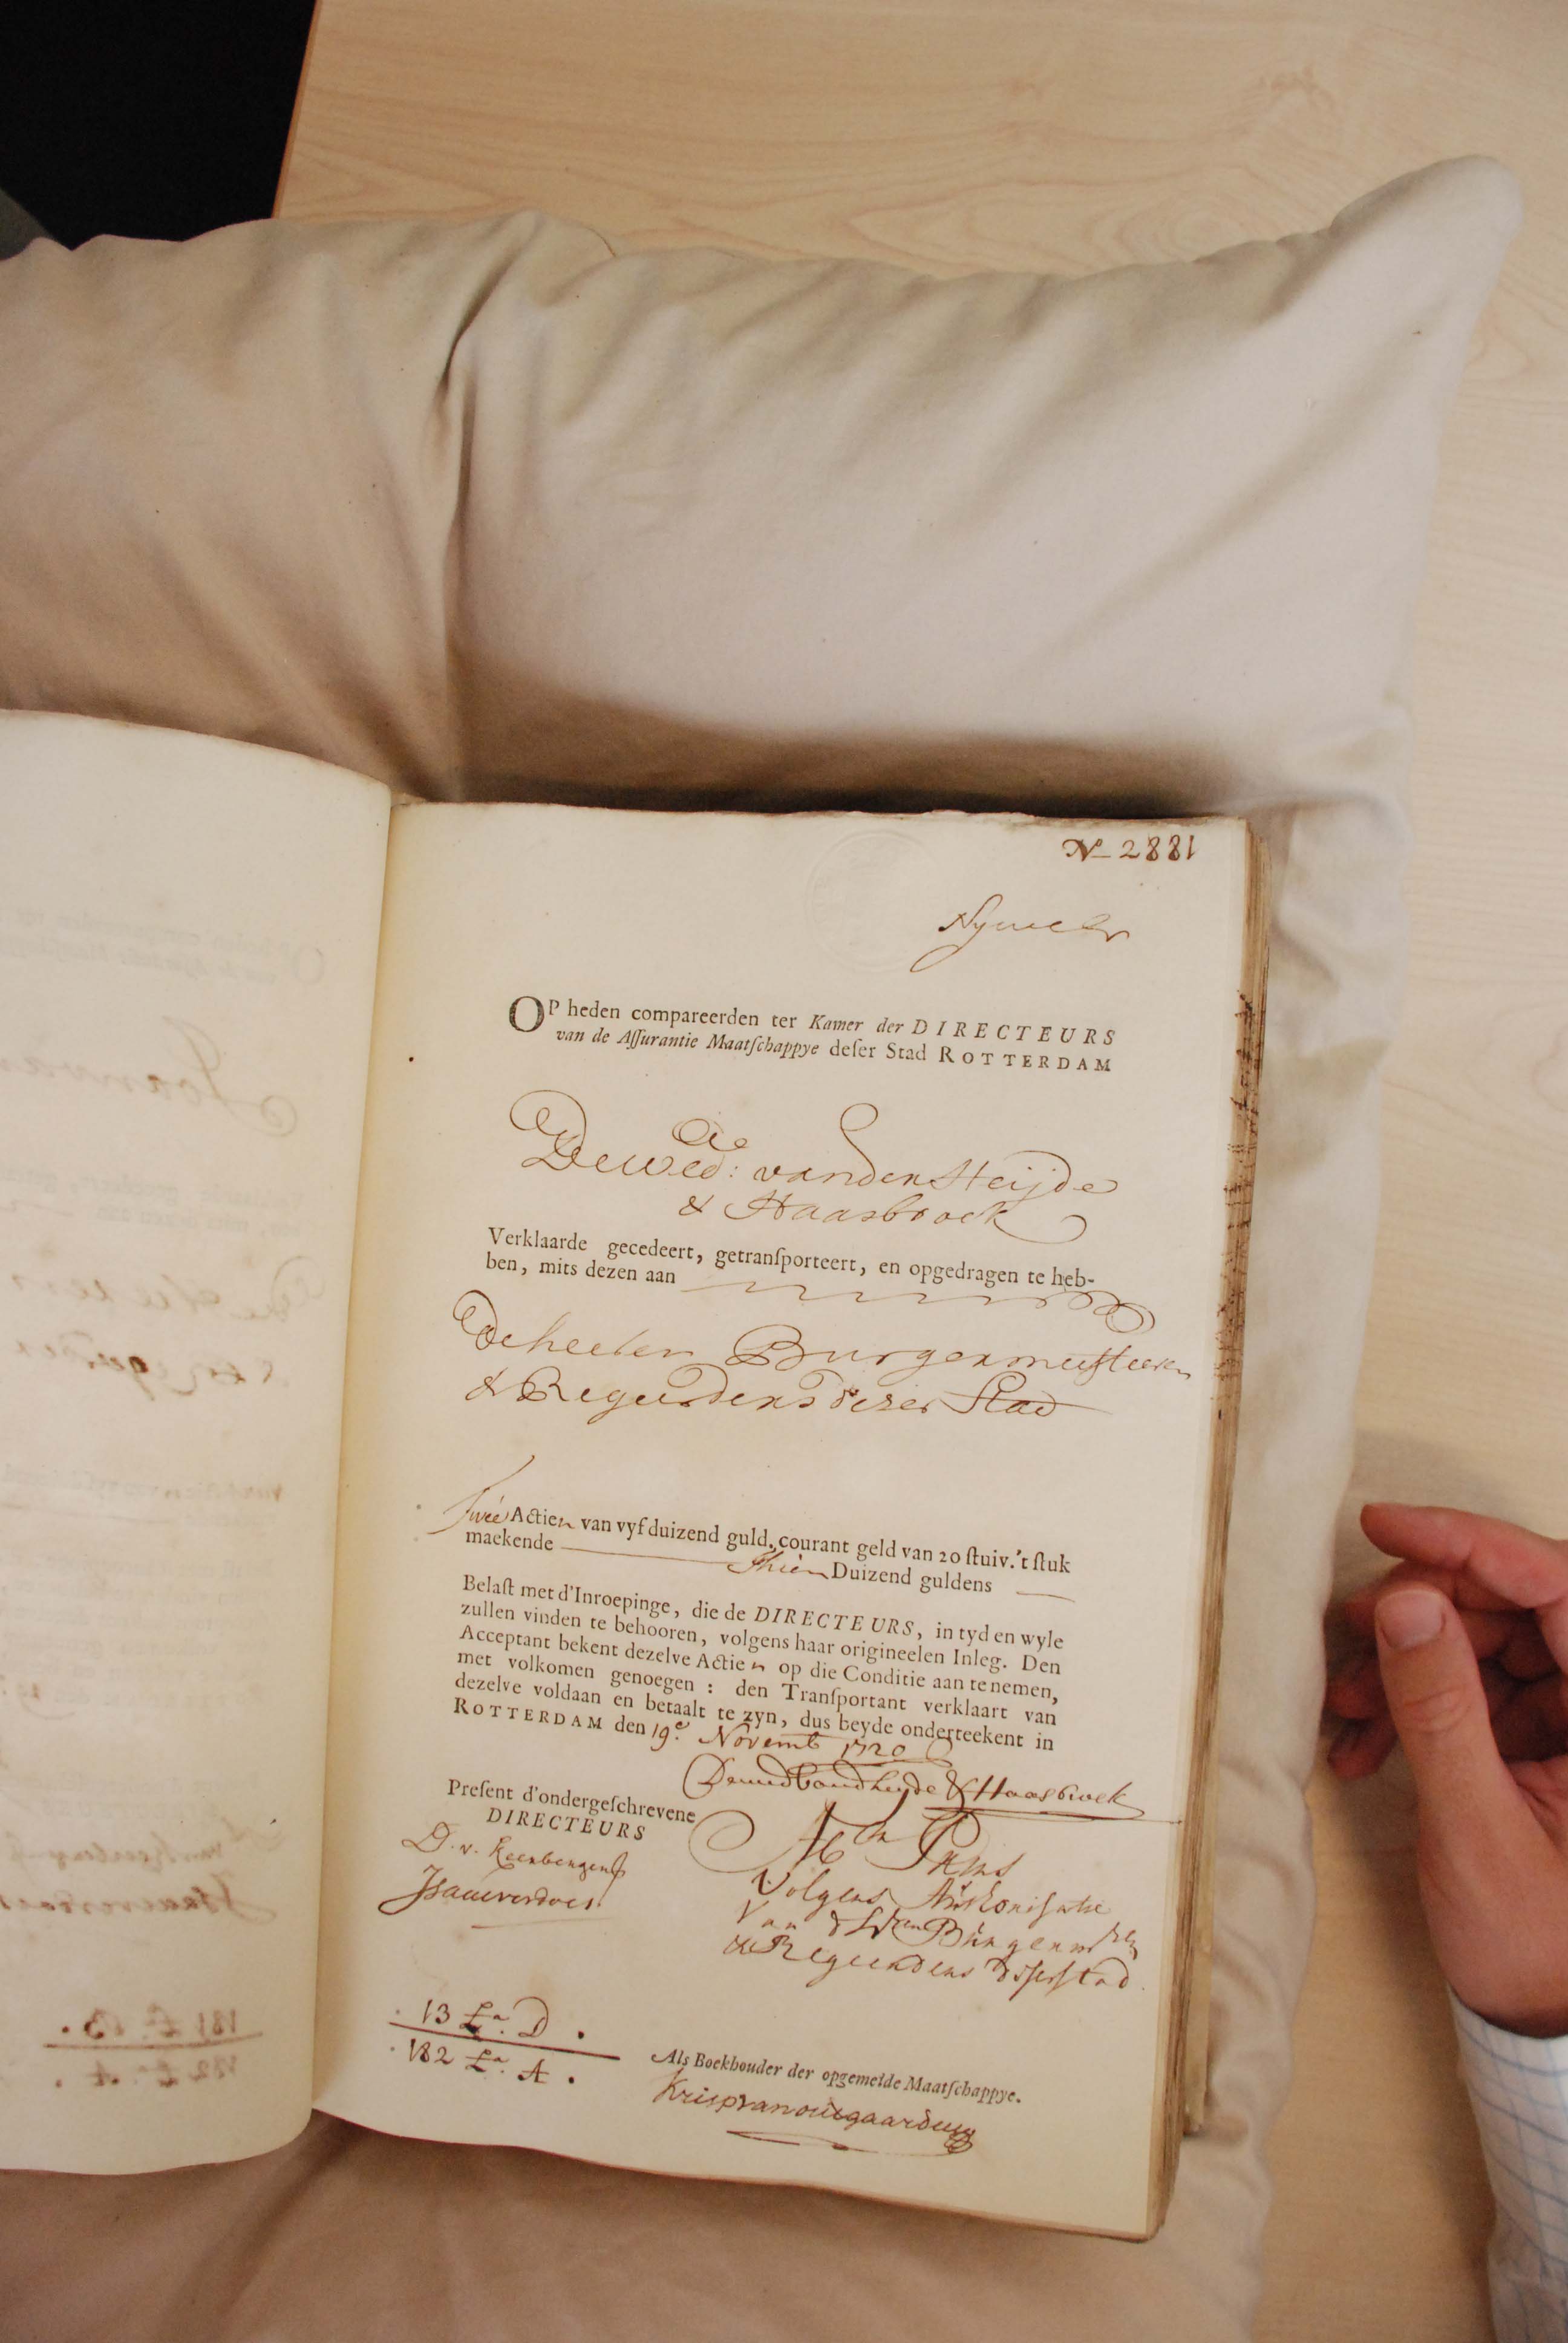 No 2881
OP heden compareerden ter Kamer der DIRECTEURS
van de Aſſurantie Maatſchappye deſer Stad ROTTERDAM
De Wed: van der Heijde
& Haasbroek
Verklaarde gecedeert, getranſporteert, en opgedragen te heb-
ben, mits dezen aan
de heeren Burgermeesteren
& Regeerders dezer Stad
Twee Actien van vyf duizend guld. courant geld van 20 ſtuiv. 't ſtuk
maekende Thien Duizend guldens
Belaſt met d'Inroepinge, die de DIRECTEURS, in tyd en wyle
zullen vinden te behooren, volgens haar origineelen Inleg. Den
Acceptant bekent dezelve Actien op die Conditie aan te nemen,
met volkomen genoegen : den Tranſportant verklaart van
dezelve voldaan en betaalt te zyn, dus beyde onderteekent in
ROTTERDAM den 19e. Novemb 1720
De wed van d heyde & Haasbroek
Preſent d'ondergeſchrevene
DIRECTEURS
Prins
Volgens Authorisatie
Van d Hren Burgermren
& Regeerders deser stad
13 La. D.
182 La. A.
Als Boekhouder der opgemelde Maatſchappye.